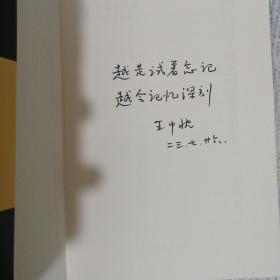 越是试着忘记
越会记忆深刻
王中忱
二三.七.廿六.